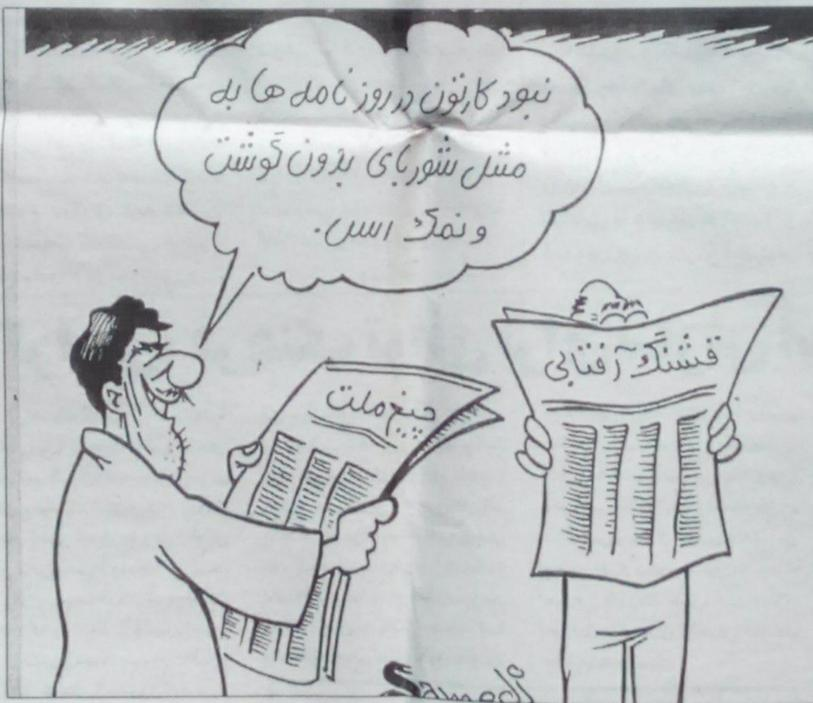 نبود کارتون در روز نامه ها به
مثل شوربای بدون گوشت
و نمک اس.
چیغ ملت
قشنگ آفتابی
Samadi